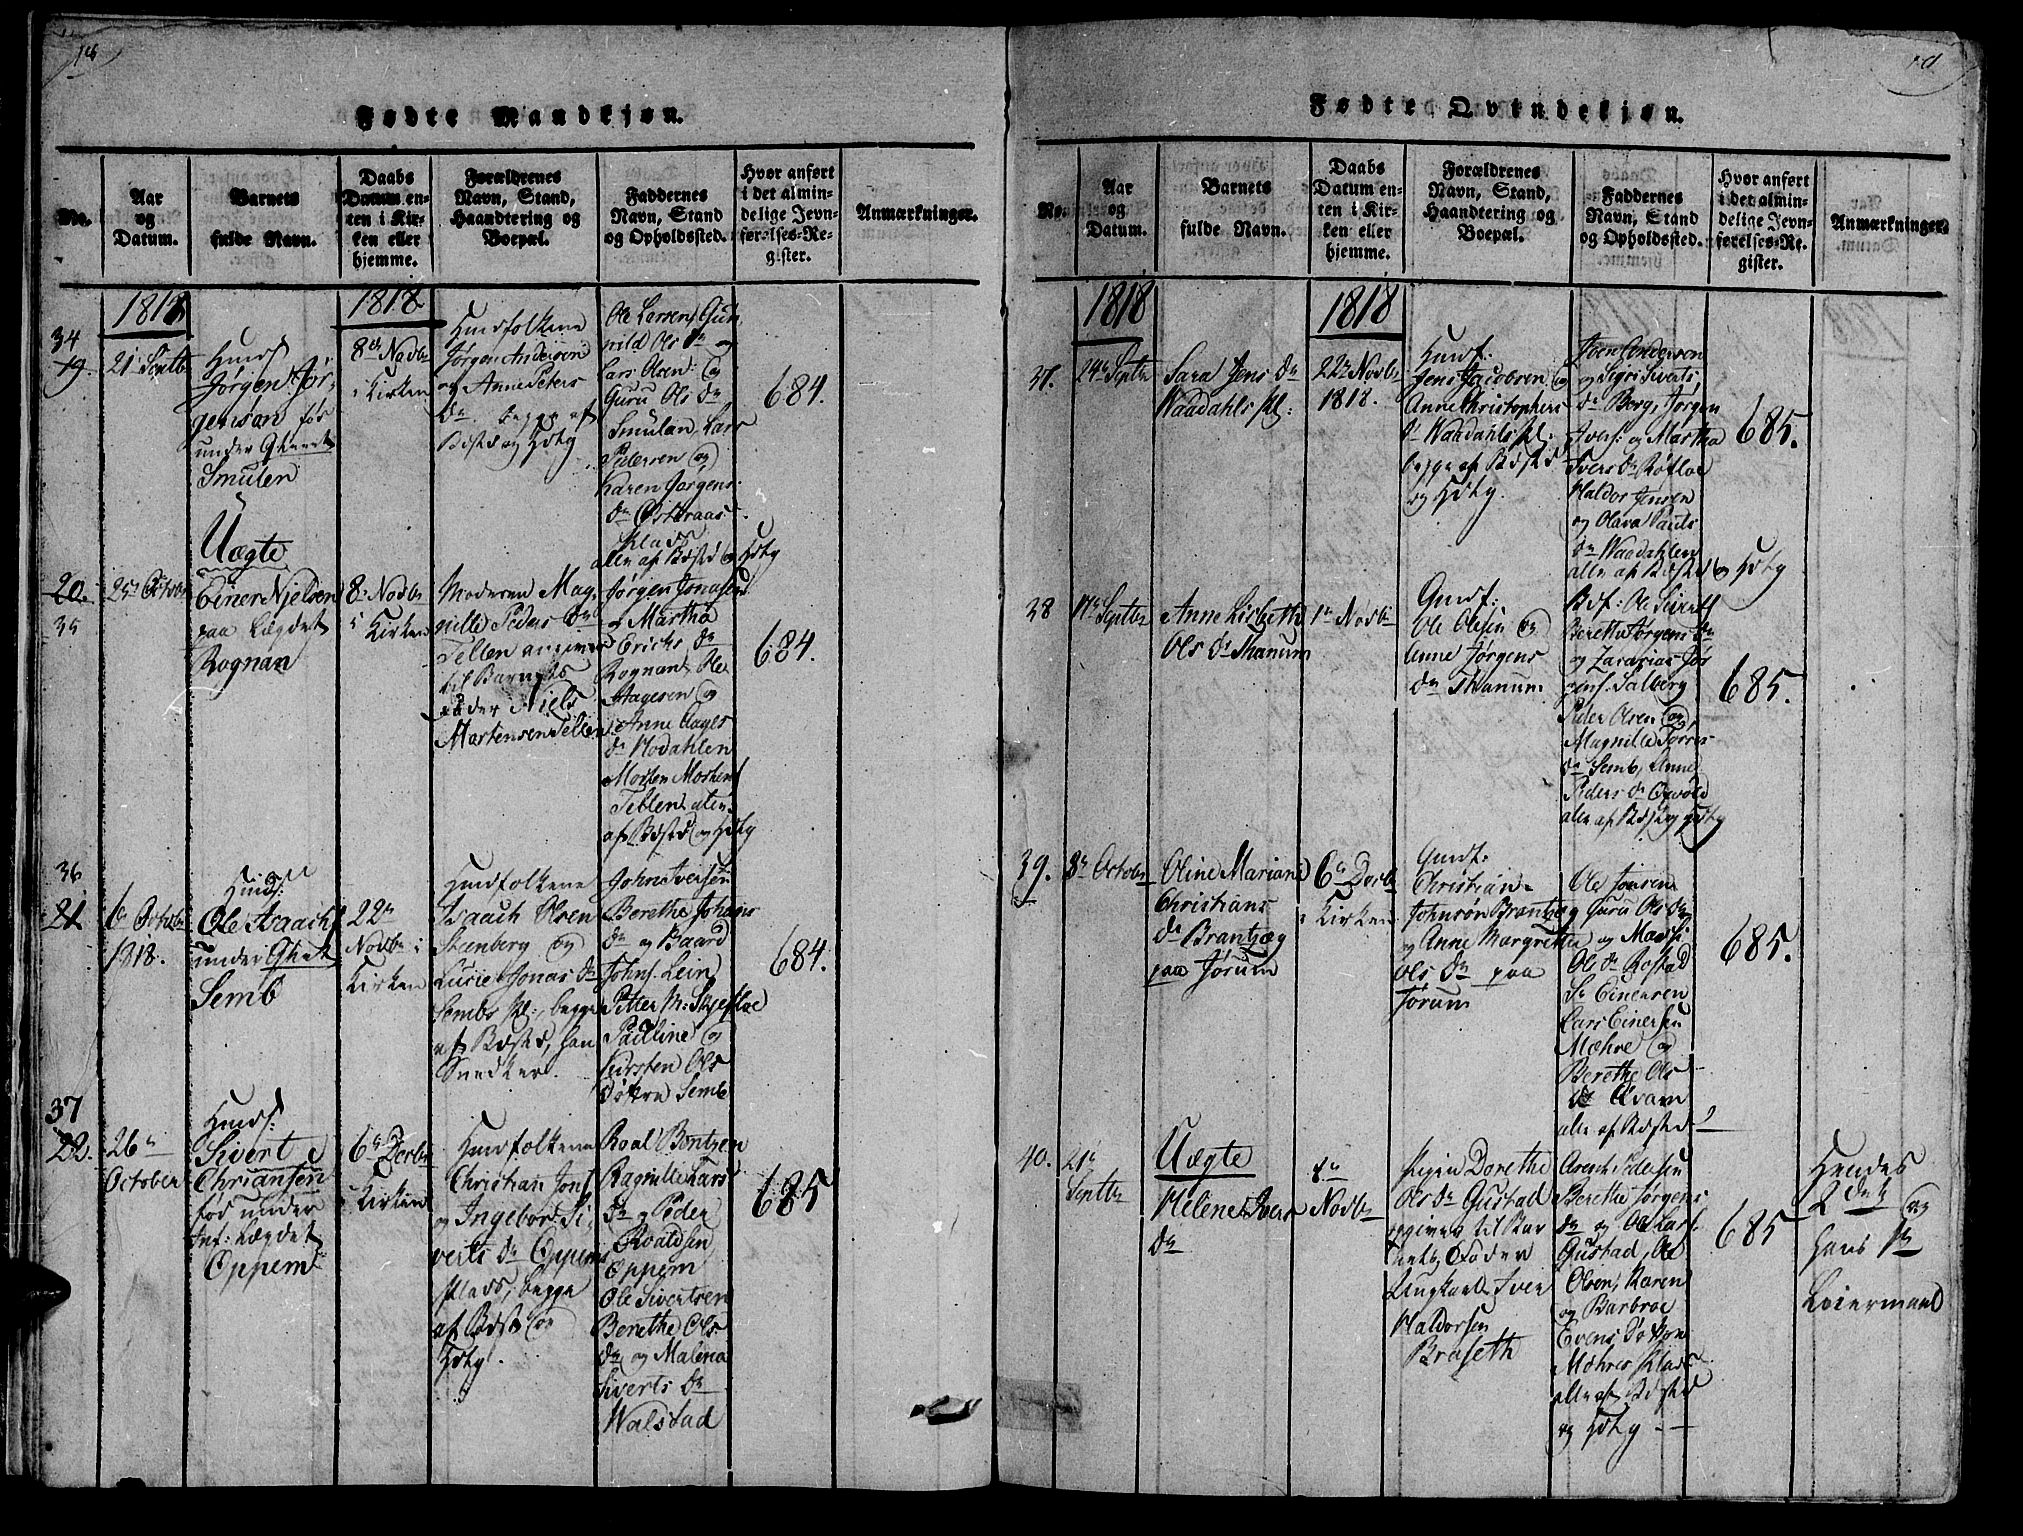 18
Fødte Mandkjøn.
No.
Aar
og
Datum.
Barnets
fulde Navn.
Daabs
Datum en-
ten i Kir-
ken eller
hjemme.
Forældrenes
Navn, Stand,
Haandtering og
Boepæl.
Faddernes
Navn, Stand
og Opholdssted.
Hvor anført
i det almin-
delige Jevn-
førelses-Re-
gister.
Anmærkninger.
1818
1818
34
19.
21 Septbr
Jørgen Jør-
gensøn
under
Smulen
8de Novbr
i Kirken
Husfolkene
Jørgen Andersen
og Anne Peders
Dr begge af
Ole Larsen, Gun
nild Ols Dr og
Lars Olsen: og
Guru Ols Dr
Smulan, Lars
Pedersen og
Karen Jørgens
Dr Østraas
Plads
alle af
684.
Uægte
20.
35
25de Octobr
Einer Nielsen
paa Legdet
Rognan
8de Novbr
i Kirken
Moderen Mag-
nille Peders Dr
Tellen angiver
til Barnets
Fader Niels
Martensen Tellen
Jørgen Jonasen
og Martha
Erichs Dr
Rognan, Ole
Aagesen og
Anne Aages
Dr Hodahlen
Morten Mortens
Teblen
684.
36
21.
6te Octobr
1818.
Ole Isaachs
under
Semb
22de
Novbr i
Kirken
Husfolkene
Isaach Olsen
Steenberg og
Lucie Jonas Dr
Sembs Pl:, begge
af
John Iversen
Berethe Johans
Dr og Baard
Johns. Lein,
Petter M: Skjefloe
Pauline og
Kirsten Ols
Døttre Semb
684.
37
22.
26de
October
Sivert
Christiansen
fød under
Inf: Legdet
Oppem
6te Decbr
i Kirken
Husfolkene
Christian Jons
og Ingebor Si-
verts Dr Oppem
Plads, begge
af
Roal Bentzen
Ragnille Lars
Dr og Peder
Roaldsen
Oppem
Ole Sivertsen
Berethe Ols
Dr og Malena
Siverts Dr
Walstad
685
Fødte Qvindekjøn.
No.
Aar
og
Datum.
Barnets
fulde Navn.
Daabs
Datum en-
ten i Kir-
ken eller
hjemme.
Forældrenes
Navn, Stand,
Haandtering og
Boepæl.
Faddernes
Navn, Stand
og Opholdssted.
Hvor anført
i det almin-
delige Jevn-
førelses-Re-
gister.
Anmærkninger.
1818
1818
37.
24de Septbr
Sara Jens Dr
Waadahls Pl:
22de Novbr
1818.
Jens Jacobsen og
Anne Christophers
Dr Waadahls Pl:
begge af
Joen Andersen
og Sigri Siverts
Dr Berg, Jørgen
Ivers: og Martha
Ivers Dr Røfloe
Haldor Jensen
og Olava Pauls
Dr Waadahlen
alle af
685.
38
17de Septbr
Anne Lisbeth
Ols Dr Thanum
1te Novbr
Ole Olsen og
Anne Jørgens
Dr Thanum
Ole Siverts
Berethe Jørgens Dr
og Zacarias Jør
gens. Salberg
Peder Olsen og
Magnille Torres
Dr Semb, Anne
Peders Dr
alle af
685.
39.
8de October
Oline Mariane
Christians
Dr Brantzæg
paa Jørum
6te Decbr
i Kirken
Christian
Johnsøn Brantzæg
og Anne Margrethe
Ols Dr paa
Jørum
Ole Jonsen
Guru Ols Dr
og Massi
Ols Dr Rostad
Einersen
Lars Einersen
Mæhre og
Berethe Ols
Dr Qvam
alle af
685.
40.
21de
Septbr
Uægte
Helene Ivers
Dr
1te
Novbr
Pigen Dorethe
Ols Dr Gustad
angiver til Bar
nets Fader
Ungkarl Iver
Haldorsen
Braseth
Pedersen
Berethe Jørgens
Dr og Ole Lars.
Gustad, Ole
Olsen, Karen
og Barbroe
Evens Døttre
Mæhres Plads
alle af
685
Hendes
2det og
hans 1te
Leiermaal